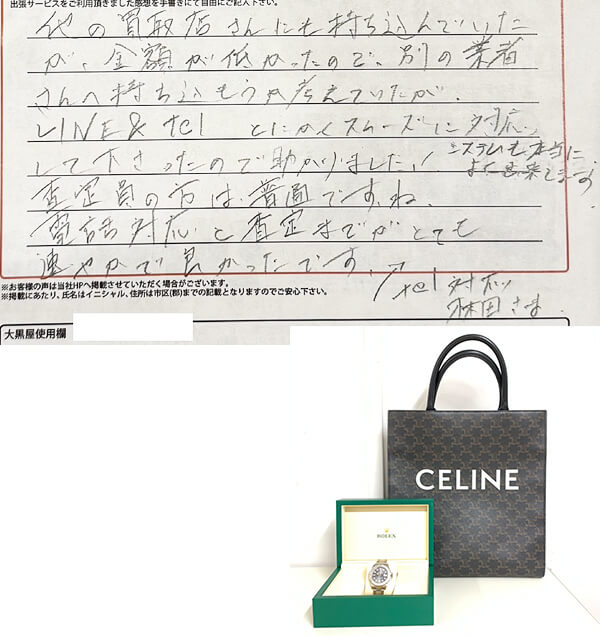 出張サービスをご利用頂きました感想を手書きにて自由にご記入下さい。
他の買取店さんにも持ち込んでいた
が、金額が低かったので、別の業者
さんへ持ち込もうか考えていたが、
LINE & tel とにかくスムーズに対応
して下さったので助かりました！
システムも本当に
よく出来てます。
査定員の方は普通ですね。
電話対応と査定までがとても
速やかで良かったです。
↗tel 対応
さま
※お客様の声は当社HPへ掲載させていただく場合がございます。
※掲載にあたり、氏名はイニシャル、住所は市区(郡)までの記載となりますのでご安心下さい。
大黒屋使用欄
CELINE
ROLEX